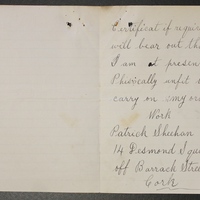 Certificat if requir
will bear out th
I am at presen
Phisically unfit
carry on my or
Work
Patrick Sheehan
14 Desmond Squa
off Barrack Stree
Cork